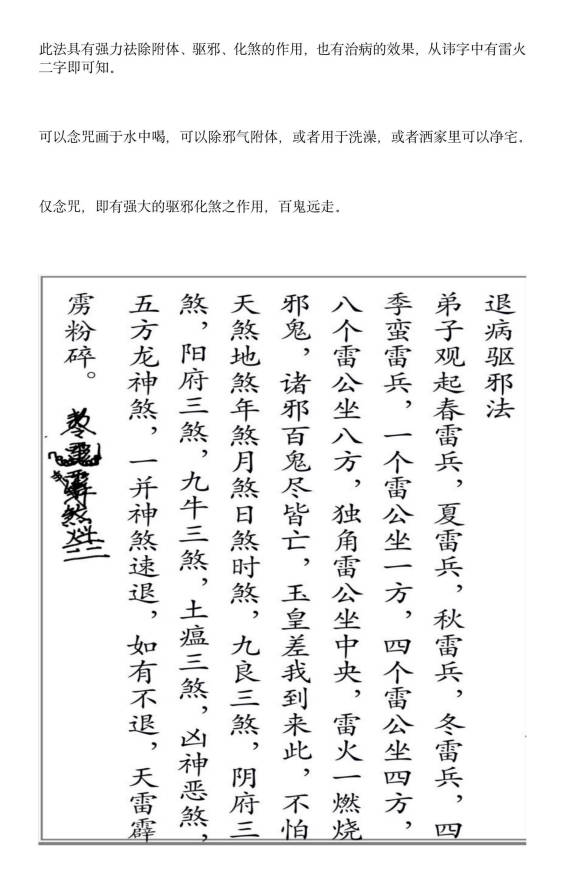 此法具有强力祛除附体、驱邪、化煞的作用，也有治病的效果，从讳字中有雷火
二字即可知。
可以念咒画于水中喝，可以除邪气附体，或者用于洗澡，或者洒家里可以净宅。
仅念咒，即有强大的驱邪化煞之作用，百鬼远走。
退病驱邪法
弟子观起春雷兵，夏雷兵，秋雷兵，冬雷兵，四
季蛮雷兵，一个雷公坐一方，四个雷公坐四方，
八个雷公坐八方，独角雷公坐中央，雷火一燃烧
邪鬼，诸邪百鬼尽皆亡，玉皇差我到来此，不怕
天煞地煞年煞月煞日煞时煞，九良三煞，阴府三
煞，阳府三煞，九牛三煞，土瘟三煞，凶神恶煞，
五方龙神煞，一并神煞速退，如有不退，天雷霹
雳粉碎。